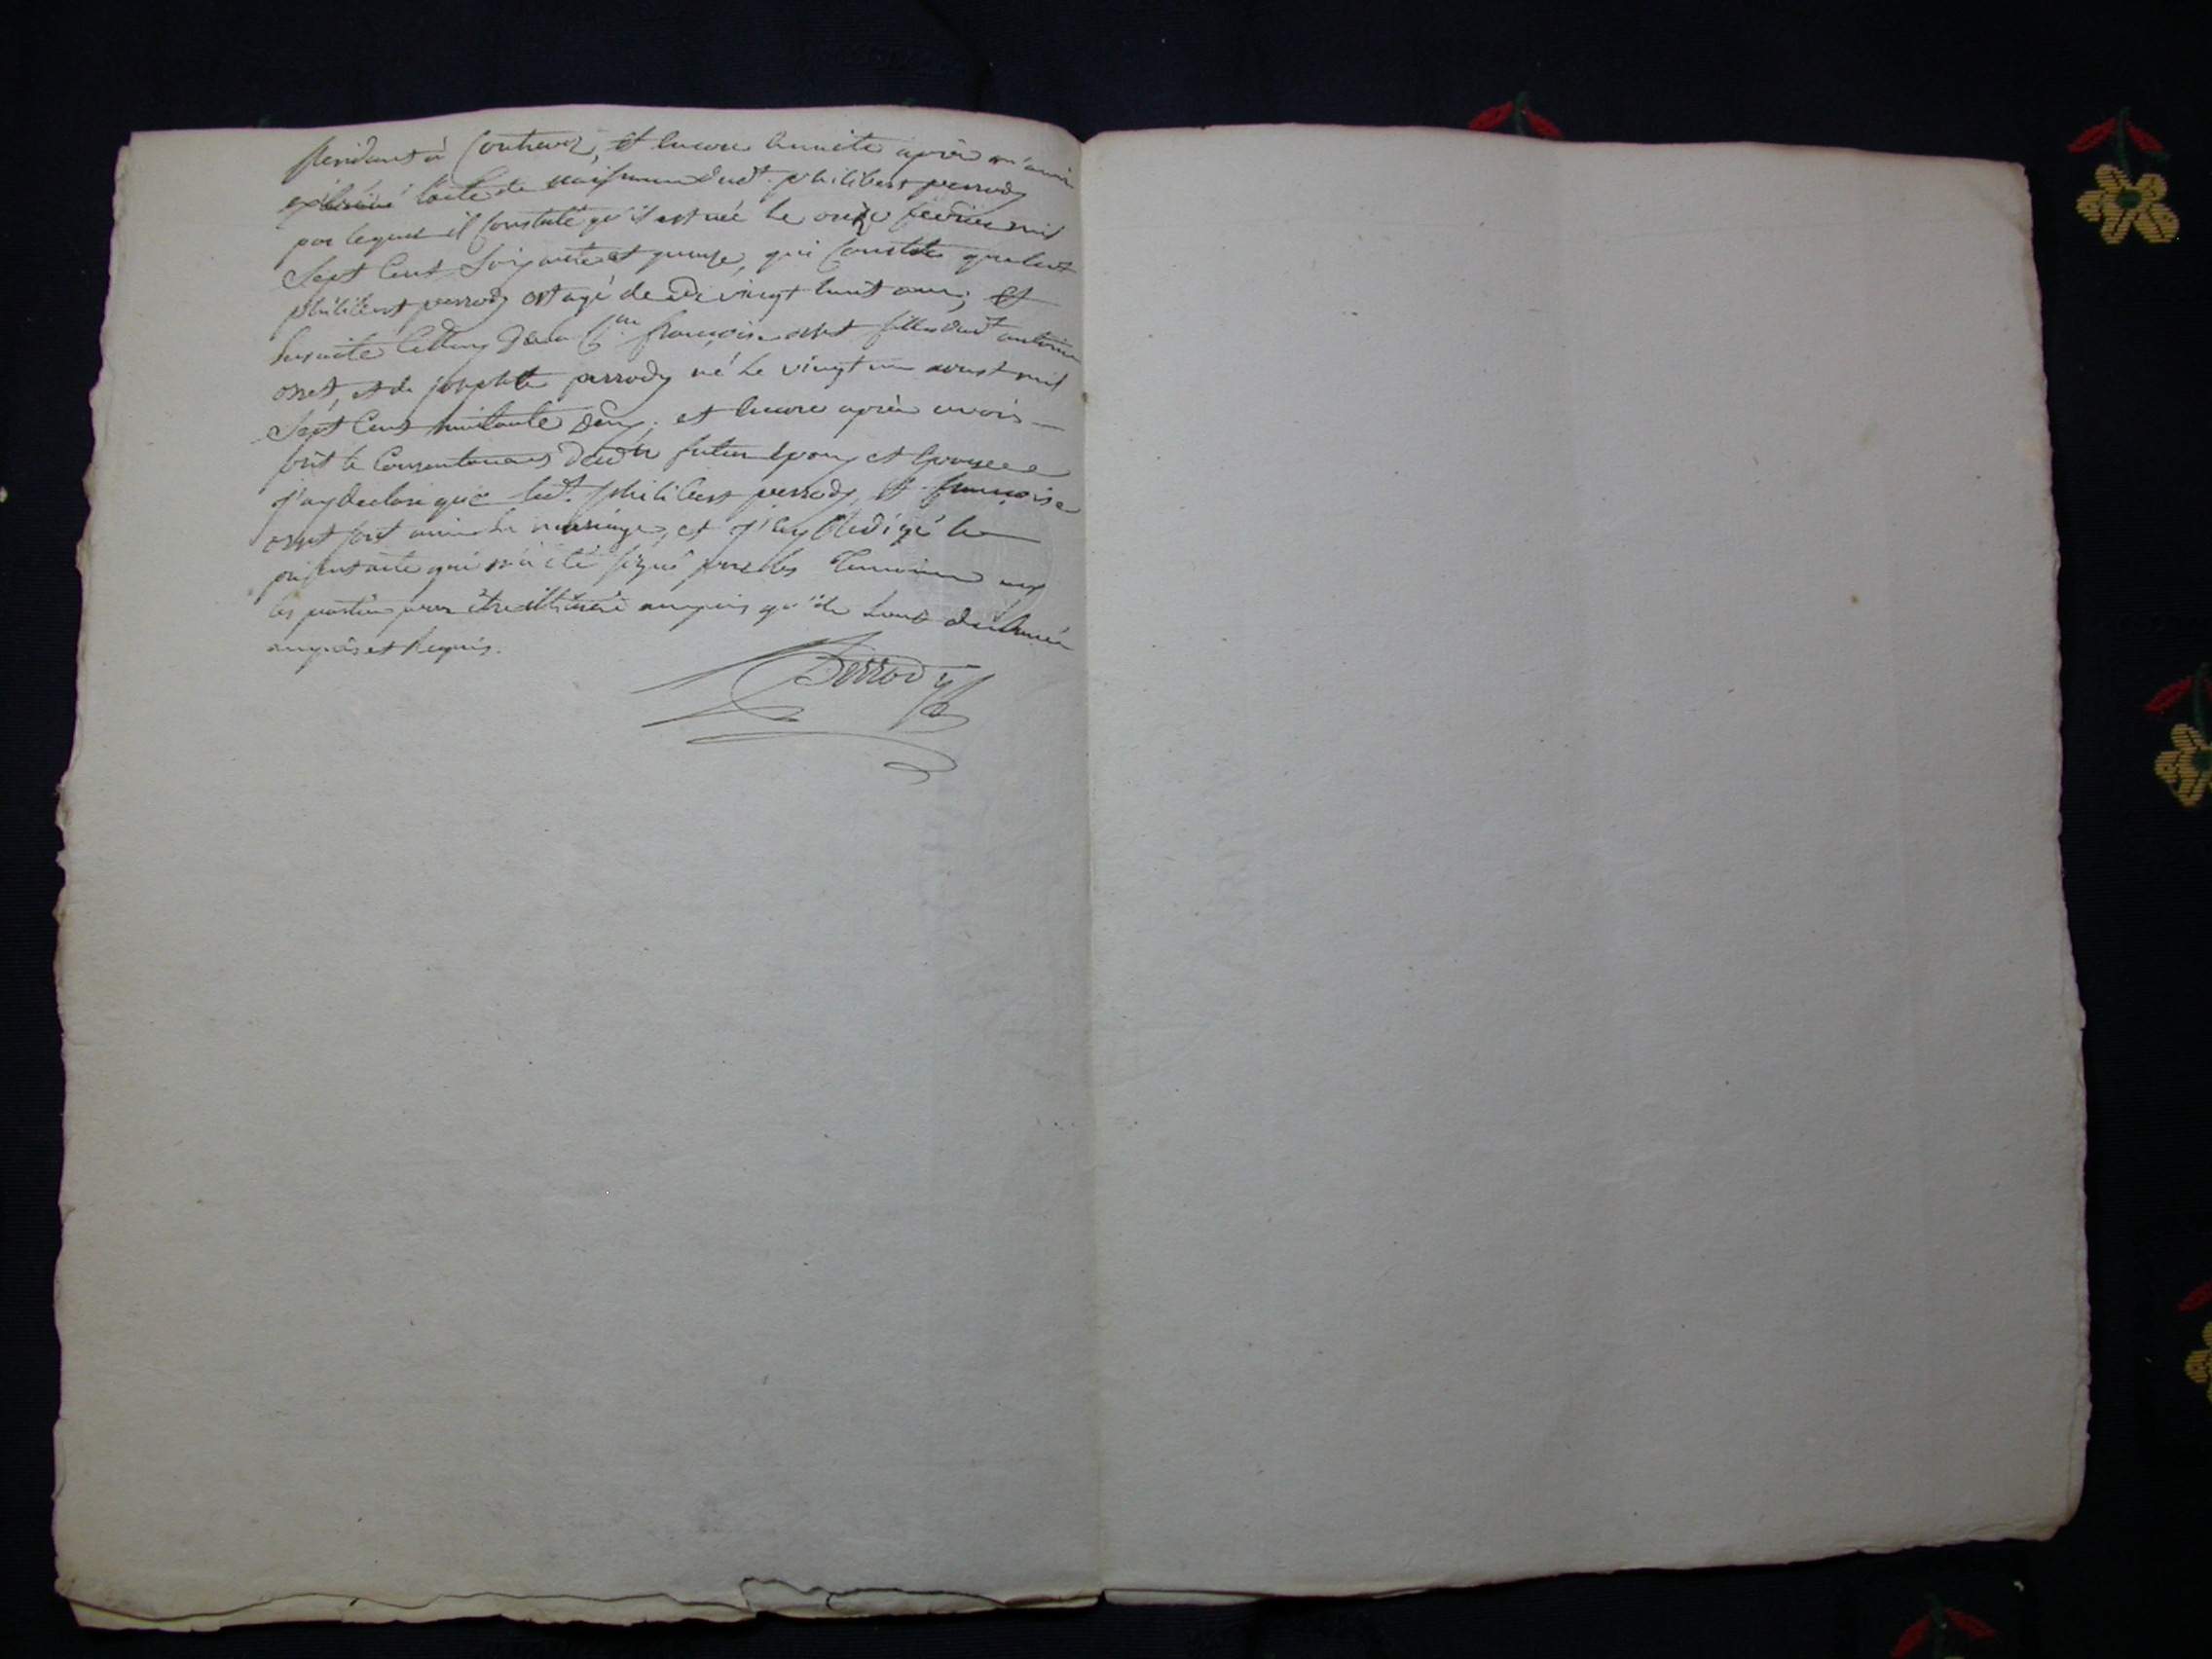 à Contrevoz, et encore ensuite après m'avoir
exhibé l'acte de naissance dudt. philibert perrody
par lequel il constate qu'il est née le onze fevrier mil
Sept Cent Soixante et quinze, qui Constate que ledt
philibert perrody est agé de vingt huit ans; et
ensuite Celluy de la françoise onet fille dudt antoine
onet, et de josephte perrody né le vingt un aoust mil
Sept Cent huitante deux; et encore après avoir
le Consentement futur epoux et epousee
j'ay declare que ledt. philibert perrody et françoise
onet sont unis en mariage, et j'ay Redigé le
présent acte qui n'a été signé par les Temoins ny
les parties pour être illiteré qu'ils declarée
enquis et Requis.
Perrody